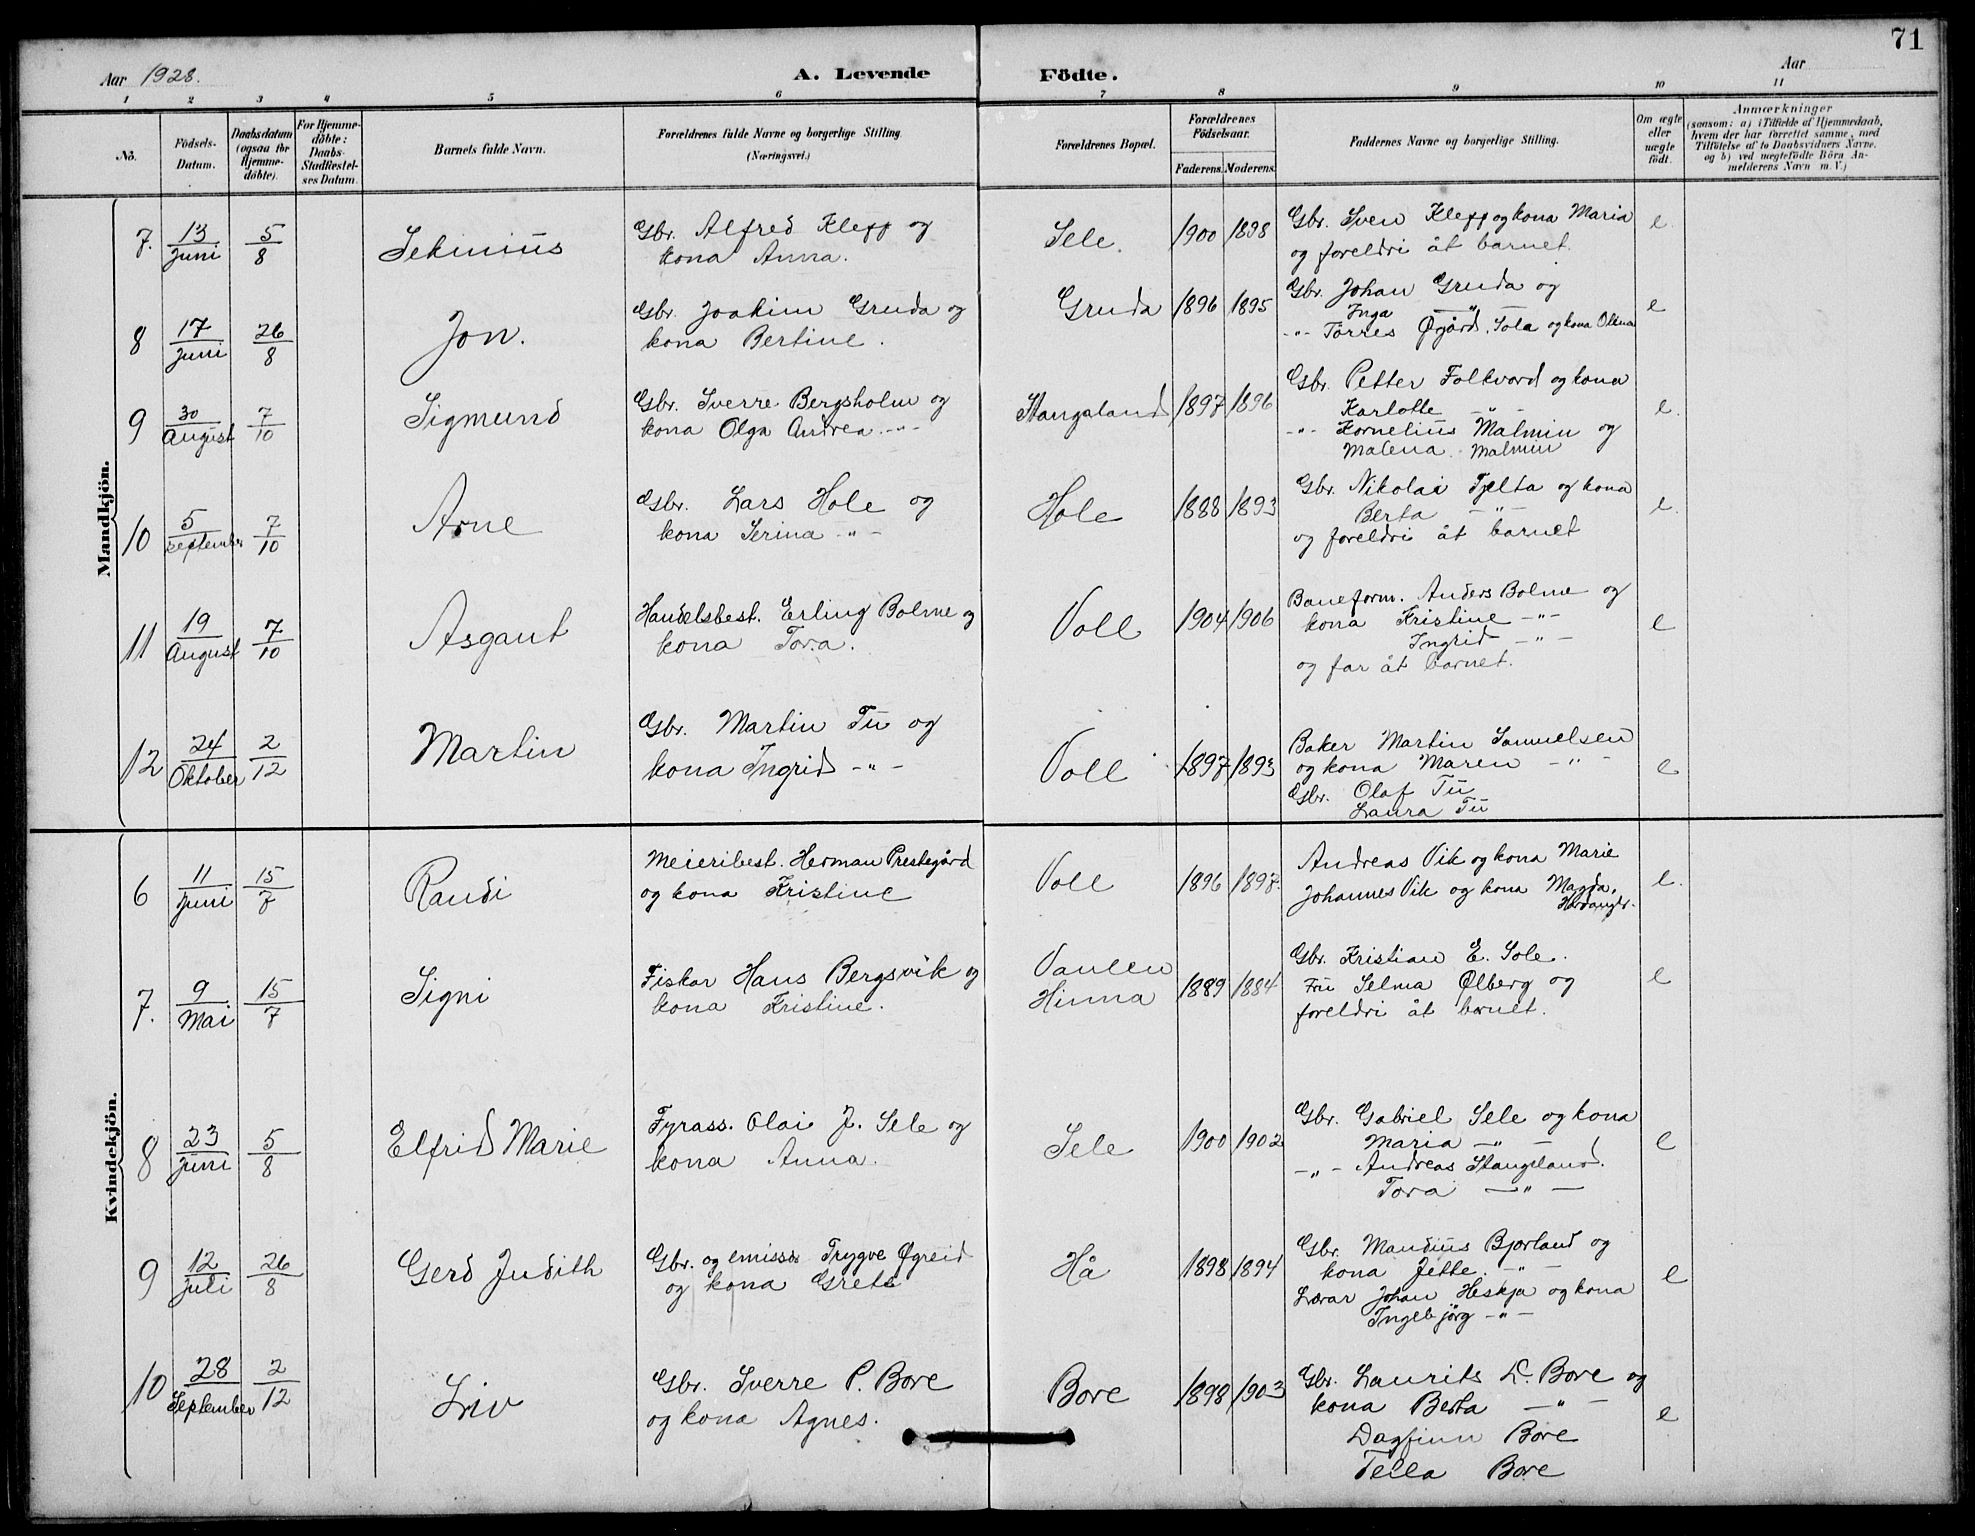 71
Aar 1928.
A. Levende Födte.
Aar
1 2 3 4 5 6 7 8 9 10 11
Nô.
Födsels-Datum.
Daabsdatum (ogsaa for Hjemme-döbte).
For Hjemme-döbte: Daabs-Stadfæstel-ses Datum.
Barnets fulde Navn.
Forældrenes fulde Navne og borgerlige Stilling (Næringsvei.)
Forældrenes Bopæl.
Forældrenes Födselsaar.
Faderens. Moderens.
Faddernes Navne og borgerlige Stilling.
Om ægte eller uægte födt.
Anmærkninger
(saasom: a) i Tilfælde af Hjemmedaab,
hvem der har forrettet samme, med
Tilföielse af to Daabsvidners Navne.
og b) ved uægtefödte Börn An-
melderens Navn m. V.)
Mandkjön.
7. 13/Juni 5/8 Sekinius Gbr. Alfred Klepp og Sele. 1900 1898 Gbr. Sven Klepp og kona Maria e.
kona Anna. og foreldri åt barnet.
8 17/Juni 26/8 Jon. Gbr. Joakim Gruda og Gruda 1896 1895 Gbr. Johan Gruda og e
kona Bertine. Inga —"—
-"- Torres Øygård, Sola og kona Olena
9 30/August 7/10 Sigmund Gbr. Sverre Bergsholm og Stangeland 1897 1896 Gbr. Petter Folkvord og kona e.
kona Olga Andrea -"- Karlotte -"-
-"- Kornelius Malmin og
Malena Malmin
10 5/september 7/10 Arne Gbr. Lars Hole og Hole 1888 1893 Gbr. Nikolai Tjelta og kona e.
kona Serina -"- Berta -"-
og foreldri åt barnet
11 19/August 7/10 Asgaut Handelsbest. Erling Bolme og Voll 1904 1906 Baneform. Anders Bolme og e
kona Tora. kona Kristine -"-
Ingrid -"-
og far åt barnet.
12 24/Oktober 2/12 Martin Gbr. Martin Tu og Voll 1897 1893 Baker Martin Samuelsen e
kona Ingrid -"- og kona Maren -"-
Gbr. Olaf Tu
Laura Tu
Kvindekjön.
6 11/Juni 15/7 Randi Meieribest. Herman Prestegård Voll 1896 1897. Andreas Vik og kona Marie e.
og kona Kristine Johannes Vik og kona Magda.
7. 9/Mai 15/7 Signi Fiskar Hans Bergsvik og Vaulen 1889 1884 Gbr. Kristian E. Sole. e
kona Kristine. Hinna Fru Selma Ølberg og
foreldri åt barnet.
8 23/juni 5/8 Elfrid Marie Fyrass. Olai J. Sele og Sele 1900 1902 Gbr. Gabriel Sele og kona e
kona Anna. Maria -"-
-"- Andreas Stangeland.
Tora —"—
9 12/juli 26/8 Gerd Judith Gbr. og emissr. Trygve Øgreid Hå 1898 1894 Gbr. Mandius Bjorland og e
og kona Grete kona Jette. -"-
Lærar Johan Heskja og kona
Ingebjörg -"-
10 28/September 2/12 Liv Gbr. Sverre P. Bore Bore 1898 1903 Gbr. Laurits D. Bore og e
og kona Agnes. kona Berta —"—
Dagfinn Bore
Tella Bore